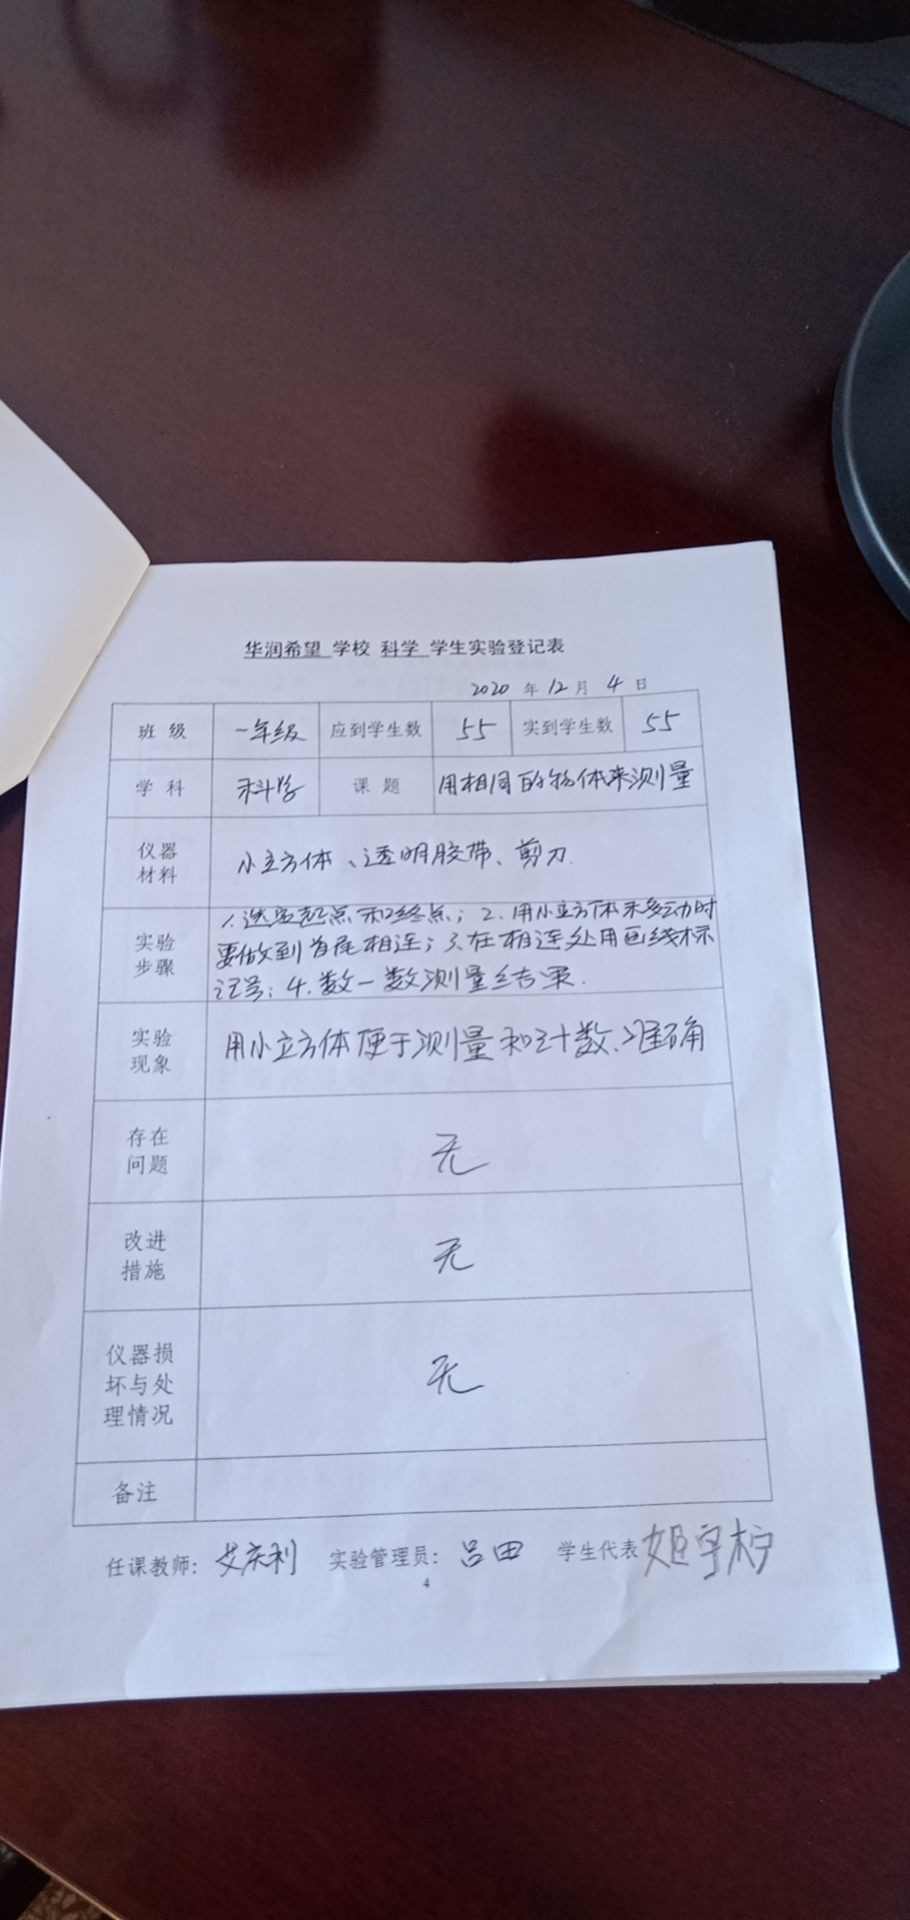 华润希望 学校 科学 学生实验登记表
2020 年 12 月 4 日
班 级 一年级 应到学生数 55 实到学生数 55
学 科 科学 课 题 用相同的物体来测量
仪器
材料
小立方体、透明胶带、剪刀.
实验
步骤
1.选定起点和终点；2.用小立方体来移动时
要做到首尾相连；3.在相连处用画线标
记号；4.数一数测量结果.
实验
现象
用小立方体便于测量和计数、准确
存在
问题
无
改进
措施
无
仪器损
坏与处
理情况
无
备注
任课教师： 艾庆利 实验管理员： 吕田 学生代表 姬宇柠
4